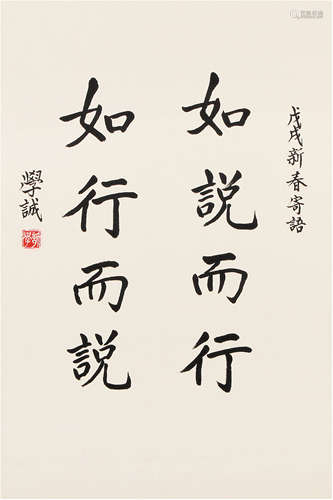 戊戌新春寄語
如說而行
如行而說
學誠